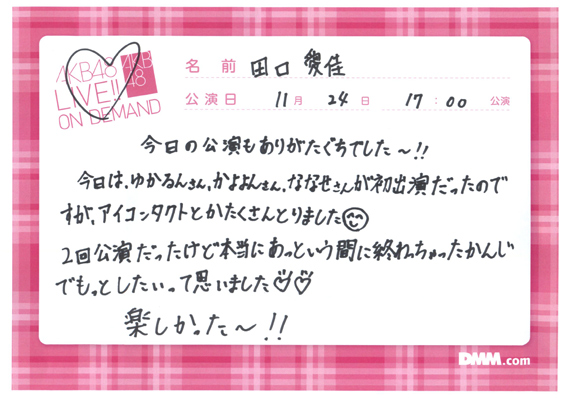 AKB48
LIVE!!
ON DEMAND
AKB
48
名 前 田口 愛佳
公演日 11月 24日 17:00 公演
今日の公演もありがたぐちでした〜!!
今日は、ゆかるんさん、かよよんさん、ななせさんが初出演だったので
すが、アイコンタクトとかたくさんとりました
2回公演だったけど本当にあっという間に終わっちゃったかんじ
でもっとしたいって思いました♡♡
楽しかった〜!!
DMM.com